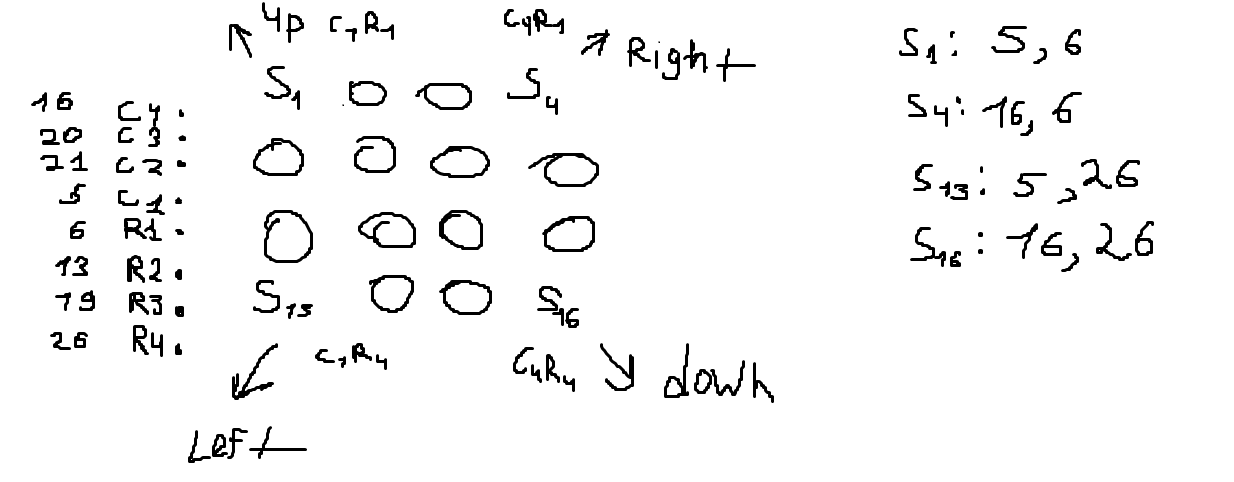 up C1R1
C4R1
Right
S1 S4
16 C4.
20 C3.
21 C2.
5 C1.
6 R1.
13 R2.
19 R3.
26 R4.
S13 S16
C1R4
C4R4
down
Left
S1: 5, 6
S4: 16, 6
S13: 5, 26
S16: 16, 26